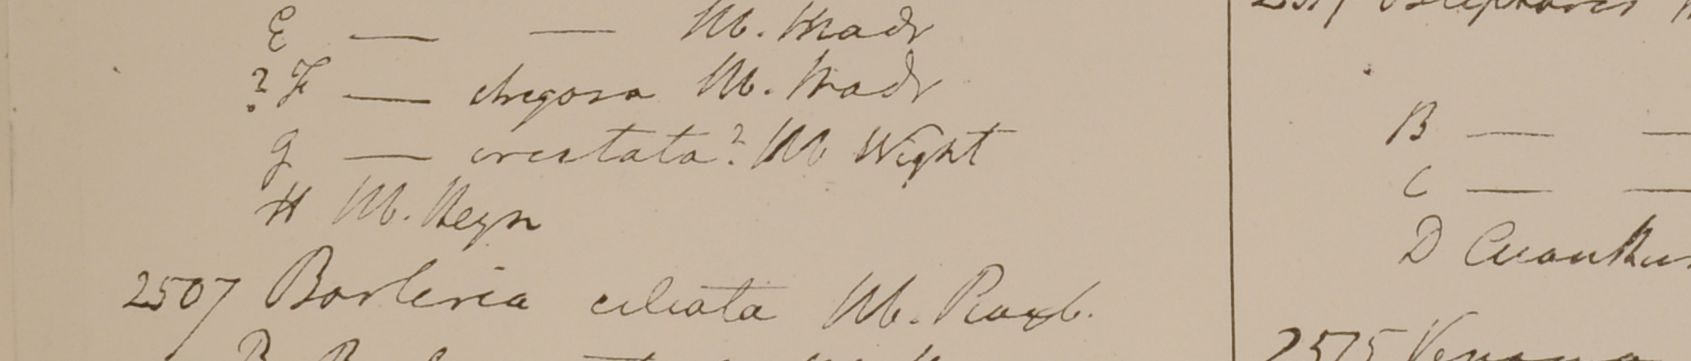 E — — Hb. Madr
? F — strigosa Hb. Madr
G — cristata? Hb Wight
H Hb. Heyn
2507 Barleria ciliata Hb. Roxb.
B — —
C — —
D Acanthus
2515